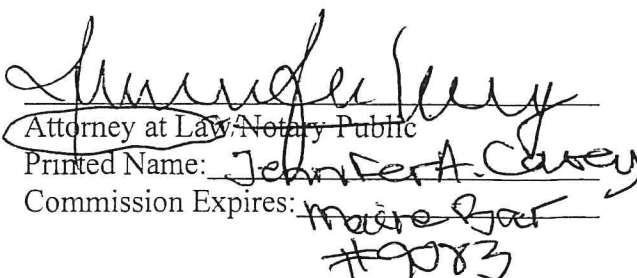 Attorney at Law/Notary Public
Printed Name: Jennifer A. Casey
Commission Expires: Maine Bar
#9083